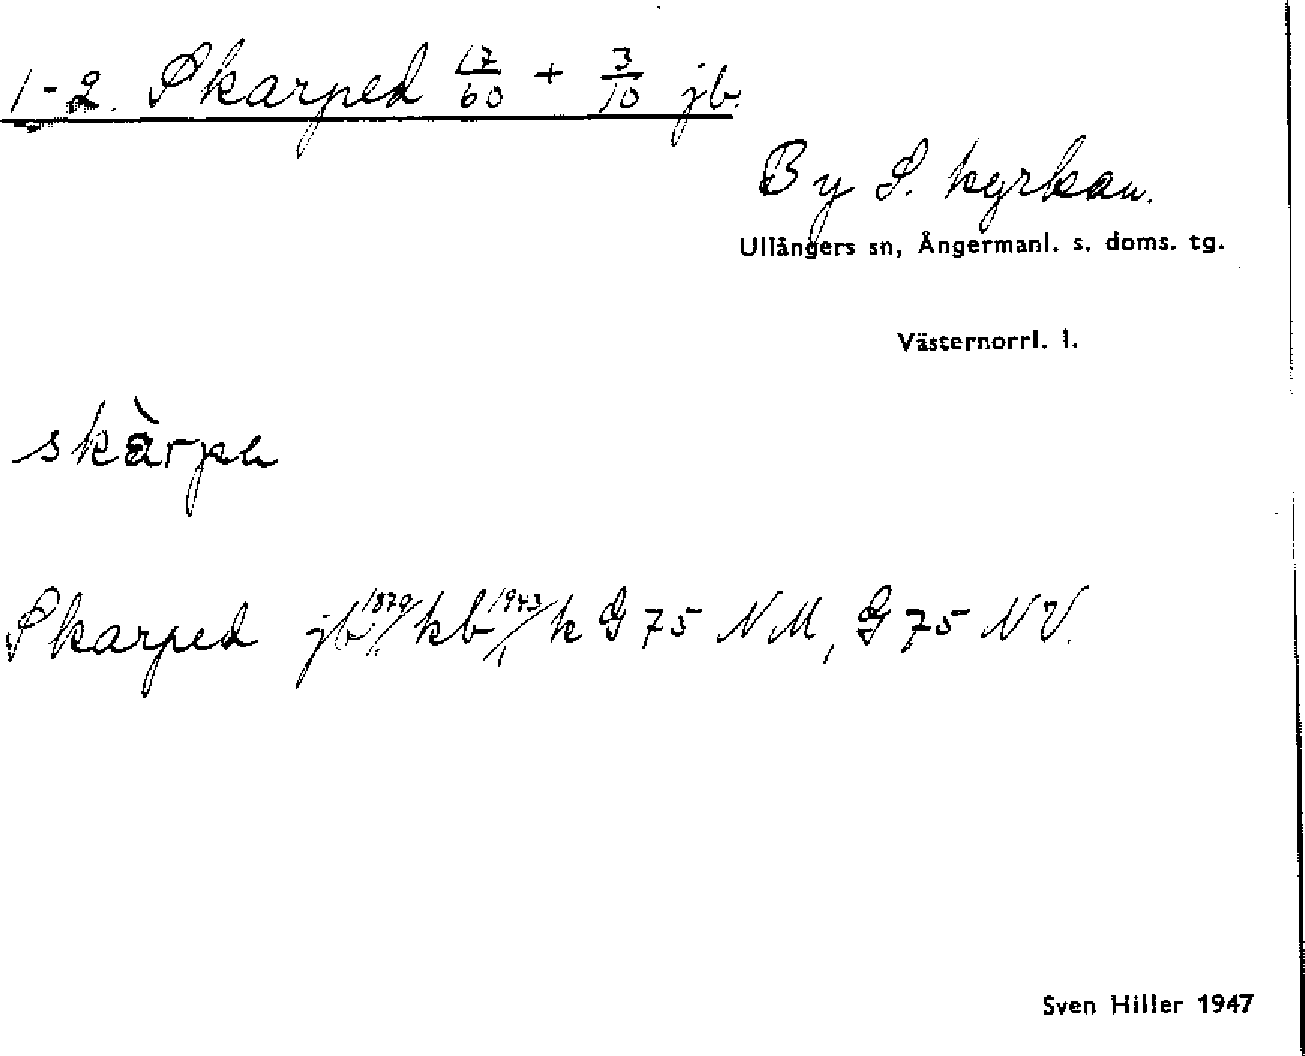 1-2. Skarped 17/60 + 3/10 jb.
By S. kyrkan.
Ullångers sn, Ångermanl. s. doms. tg.
Västernorrl. l.
Skarped jb 1879/ kb 1943/1 k G 75 NM, G 75 NV.
Sven Hiller 1947